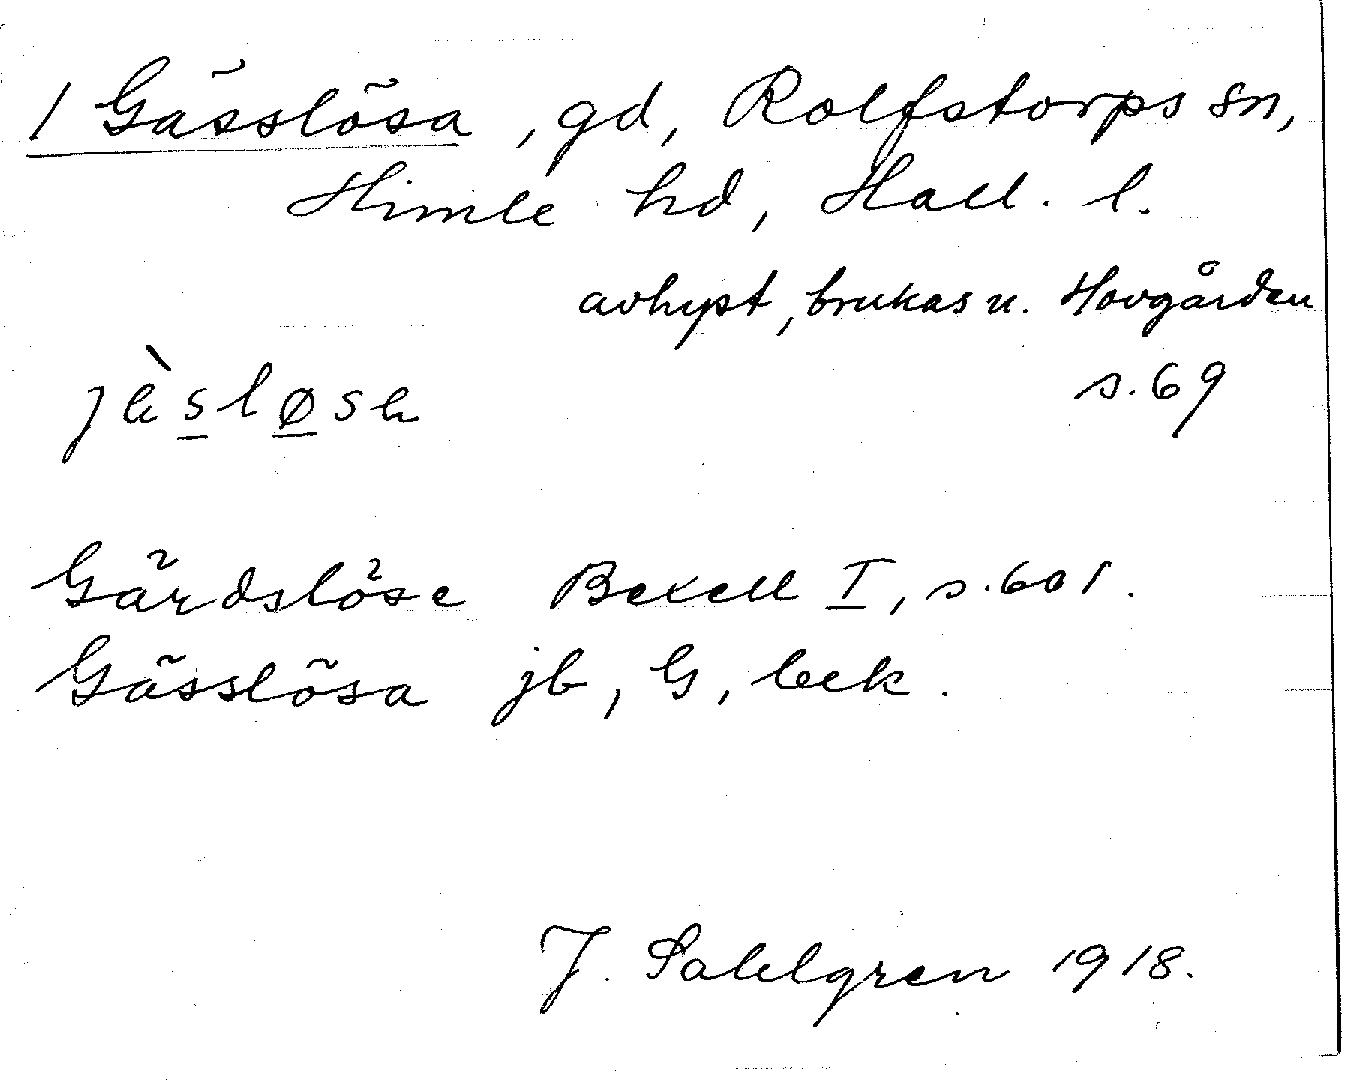 1 Gässlösa, gd, Rolfstorps sn,
Himle hd, Hall. l.
avhyst, brukas u. Hovgården
s. 69
jèsløsa
Gärdslöse Bexell I, s. 601.
Gässlösa jb, G, bek.
J. Sahlgren 1918.